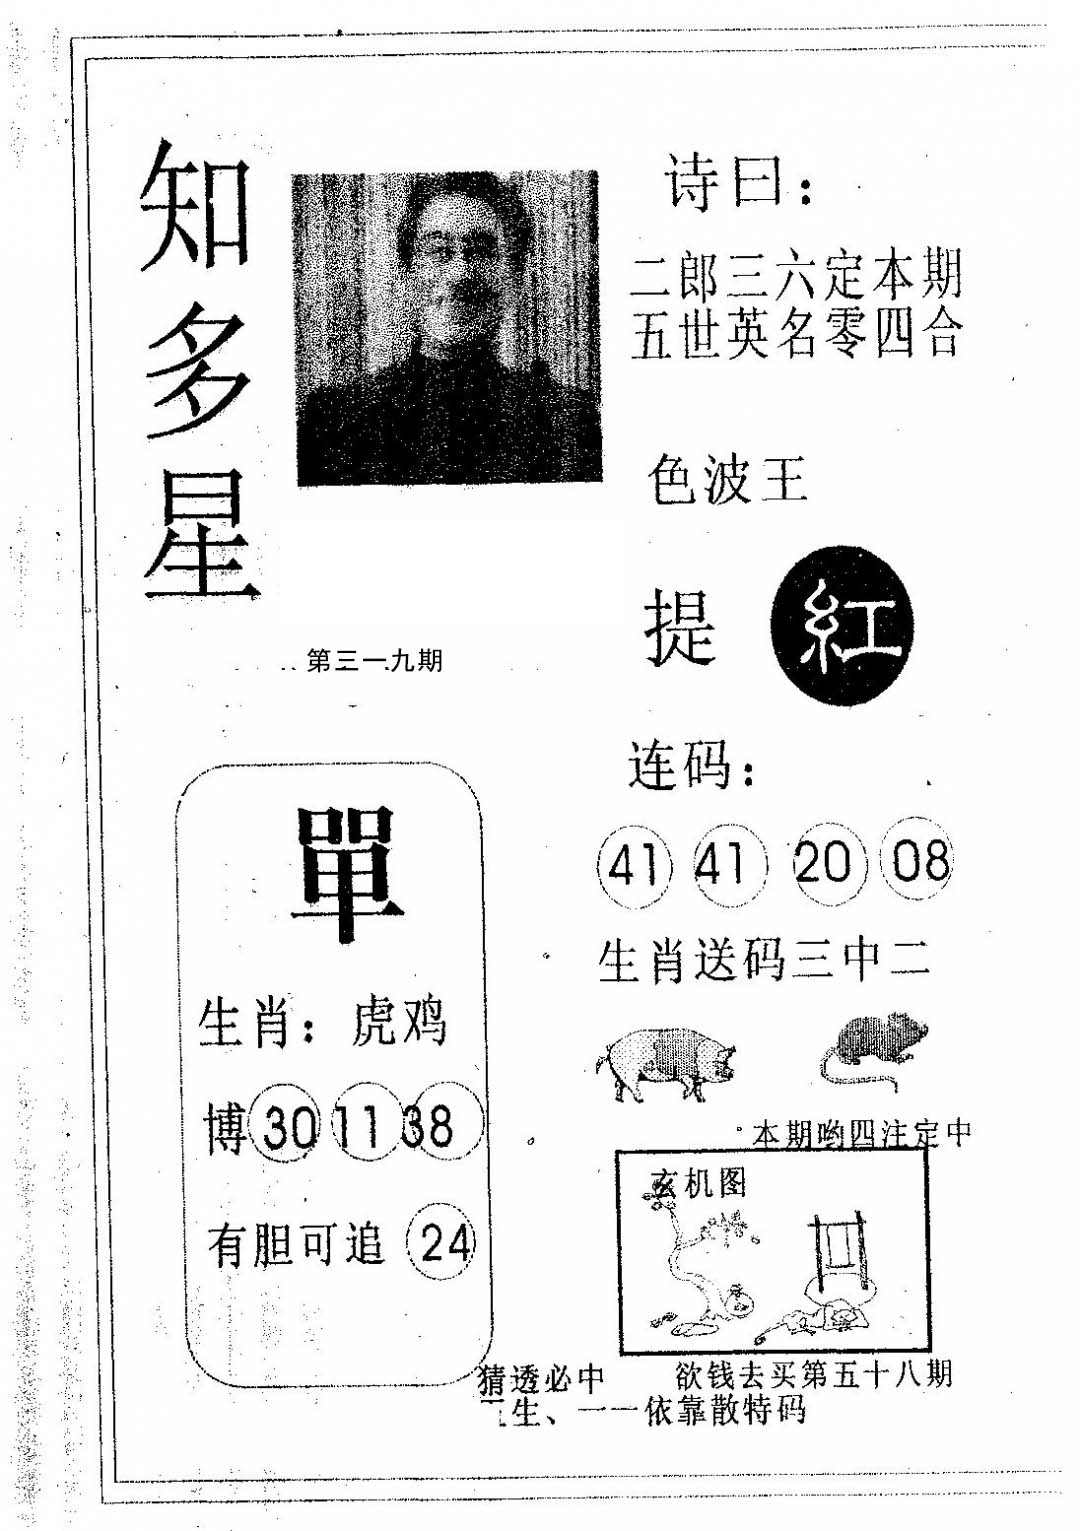 知多星
诗曰：
二郎三六定本期
五世英名零四合
色波王
提 紅
第三一九期
连码：
41 41 20 08
單
生肖：虎鸡
博 30 11 38
有胆可追 24
生肖送码三中二
本期哟四注定中
玄机图
猜透必中 欲钱去买第五十八期
生、一一依靠散特码